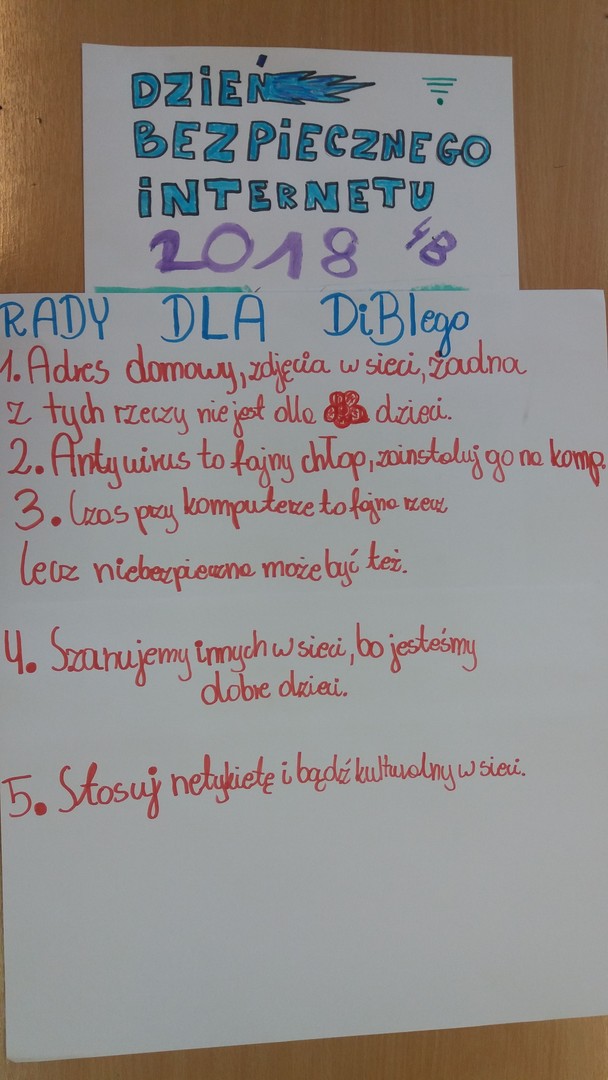 DZIEŃ
BEZPIECZNEGO
INTERNETU
2018 4B
RADY DLA DiBlego
1. Adres domowy, zdjęcia w sieci, żadna
z tych rzeczy nie jest dla dzieci.
2. Antywirus to fajny chłop, zainstaluj go na komp.
3. Czas przy komputerze to fajna rzecz,
lecz niebezpieczna może być też.
4. Szanujemy innych w sieci, bo jesteśmy
dobre dzieci.
5. Stosuj netykietę i bądź kulturalny w sieci.